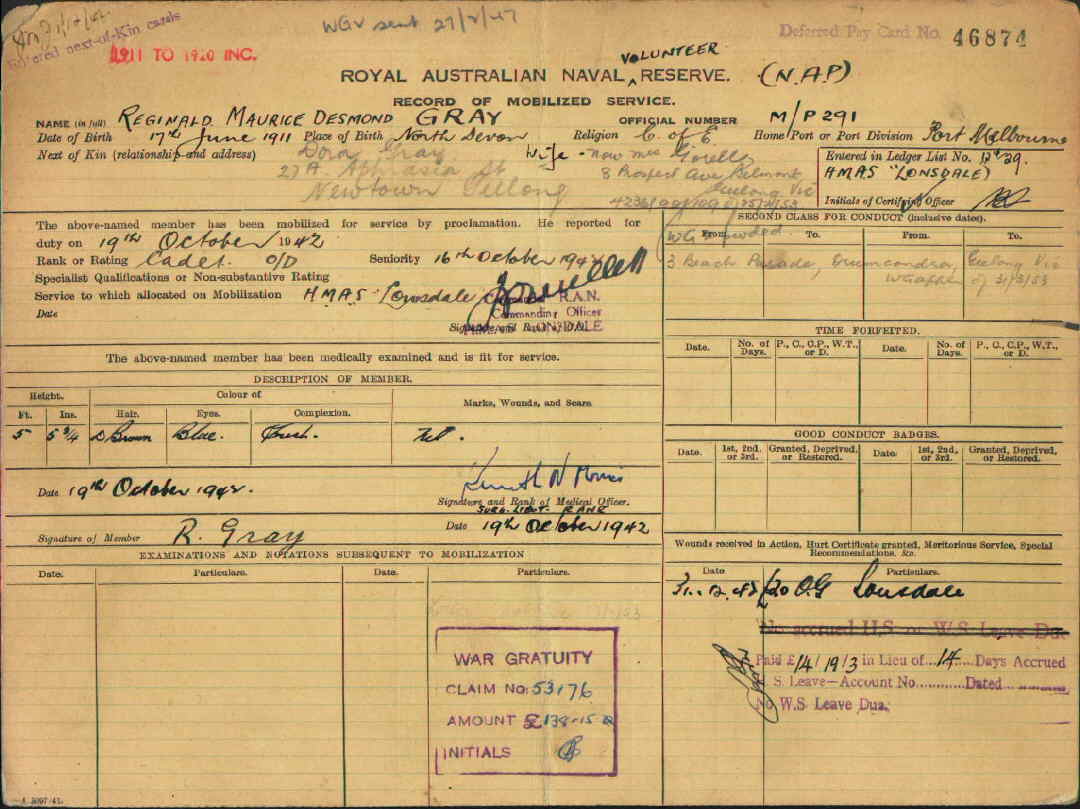 WGV sent 27/2/47
Deferred Pay Card No. 46874
Entered next-of-Kin cards
1911 TO 1920 INC.
VOLUNTEER
ROYAL AUSTRALIAN NAVAL RESERVE. (N.A.P)
RECORD OF MOBILIZED SERVICE.
NAME (in full) REGINALD MAURICE DESMOND GRAY OFFICIAL NUMBER M/P 291
Date of Birth 17th June 1911 Place of Birth North Devon Religion C. of E. Home Port or Port Division Port Melbourne
Next of Kin (relationship and address) Dora Gray Wife - now Mrs
27 A. Aphrasia St
Newtown Geelong
8 Prospect Ave Belmont
Geelong Vic
Entered in Ledger List No. 12
HMAS "LONSDALE)
Initials of Certifying Officer
The above-named member has been mobilized for service by proclamation. He reported for
duty on 19th October 1942
Rank or Rating Cadet. O/D Seniority 16th October 1942
Specialist Qualifications or Non-substantive Rating
Service to which allocated on Mobilization HMAS Lonsdale
R.A.N.
Commanding Officer
LONSDALE
Date Signature and Rank of
SECOND CLASS FOR CONDUCT (inclusive dates).
From. To. From. To.
3 Beach Parade, Drumcondra, Geelong Vic
of 31/3/53
TIME FORFEITED.
Date. No. of Days. P., C., C.P., W.T., or D. Date. No. of Days. P., C., C.P., W.T., or D.
The above-named member has been medically examined and is fit for service.
DESCRIPTION OF MEMBER.
Height. Colour of Marks, Wounds, and Scars.
Ft. Ins. Hair. Eyes. Complexion.
5 5 3/4 D Brown Blue. Fresh. Nil.
GOOD CONDUCT BADGES.
Date. 1st, 2nd, or 3rd. Granted, Deprived, or Restored. Date. 1st, 2nd, or 3rd. Granted, Deprived, or Restored.
Date 19th October 1942. Kenneth N Morris
Signature and Rank of Medical Officer.
SURG. LIEUT. RANR
Signature of Member R. Gray Date 19th October 1942
EXAMINATIONS AND NOTATIONS SUBSEQUENT TO MOBILIZATION
Date. Particulars. Date. Particulars.
Wounds received in Action, Hurt Certificate granted, Meritorious Service, Special
Recommendations, &c.
Date Particulars.
31.12.42 O.G Lonsdale
No accrued H.S or W.S Leave Due
Paid £14/19/3 in Lieu of 14 Days Accrued
S. Leave—Account No. Dated
No W.S. Leave Due.
WAR GRATUITY
CLAIM No: 53176
AMOUNT £ 138-15
INITIALS
A 3097/41.